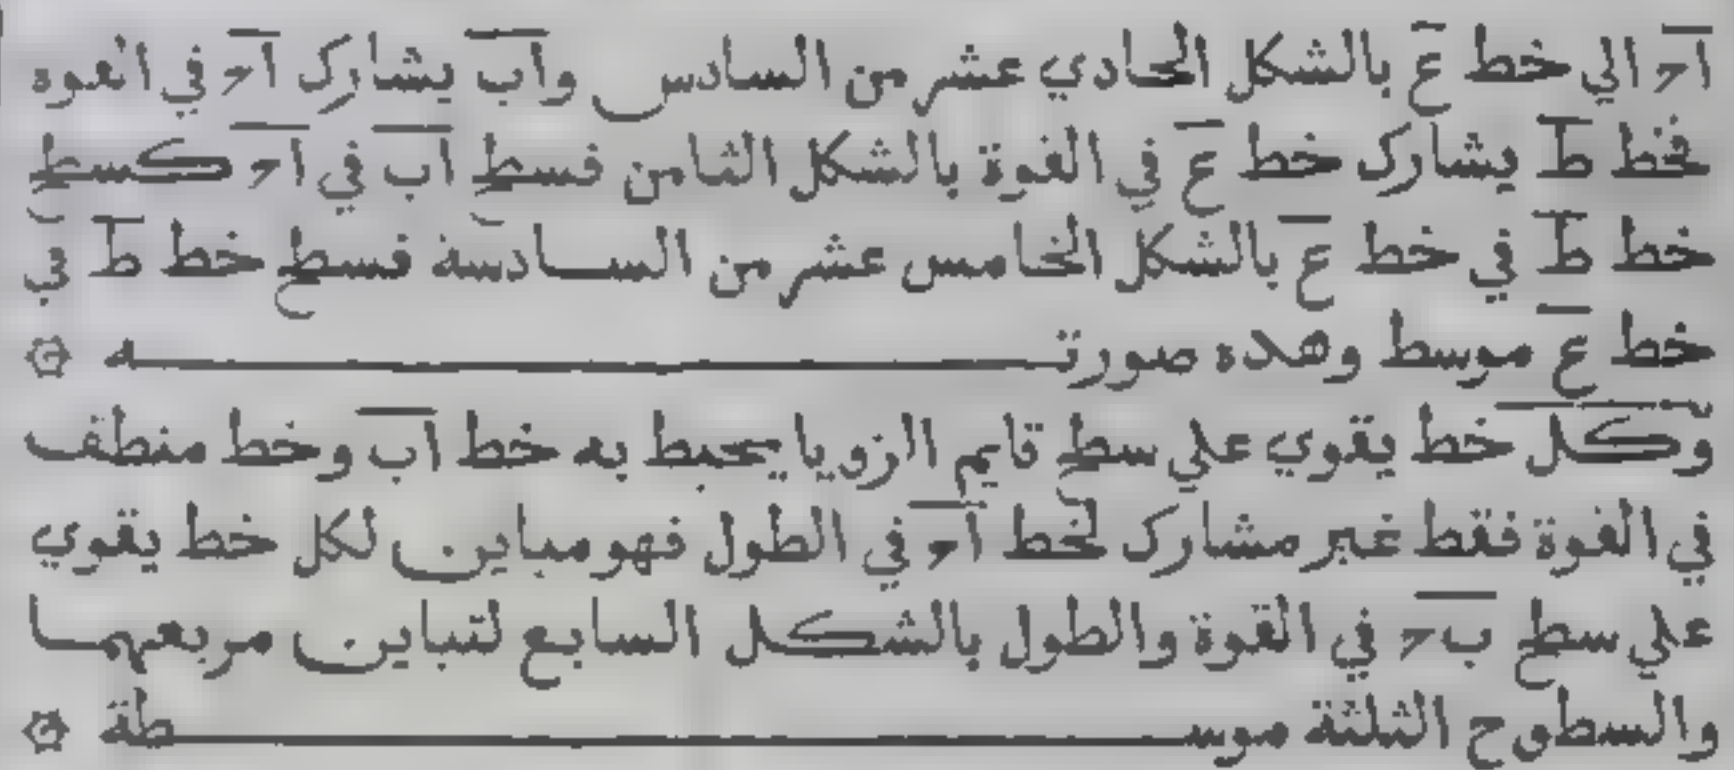 اَحـ الي خط ع بالشكل الحادي عشر من السادس واب يشارك احـ في القوه
فخط ط يشارك خط ع في القوة بالشكل الثامن فسطح اب في احـ كسطح
خط ط في خط ع بالشكل الخامس عشر من السادسة فسطح خط ط في
خط ع موسط وهذه صورتـــــــه ۞
وكل خط يقوي علي سطح قايم الزويا يحيط به خط اب وخط منطق
في القوة فقط غير مشارك لخط احـ في الطول فهو مباين لكل خط يقوي
علي سطح ب حـ في القوة والطول بالشكل السابع لتباين مربعيهما
والسطوح الثلثة موســـــــطة ۞